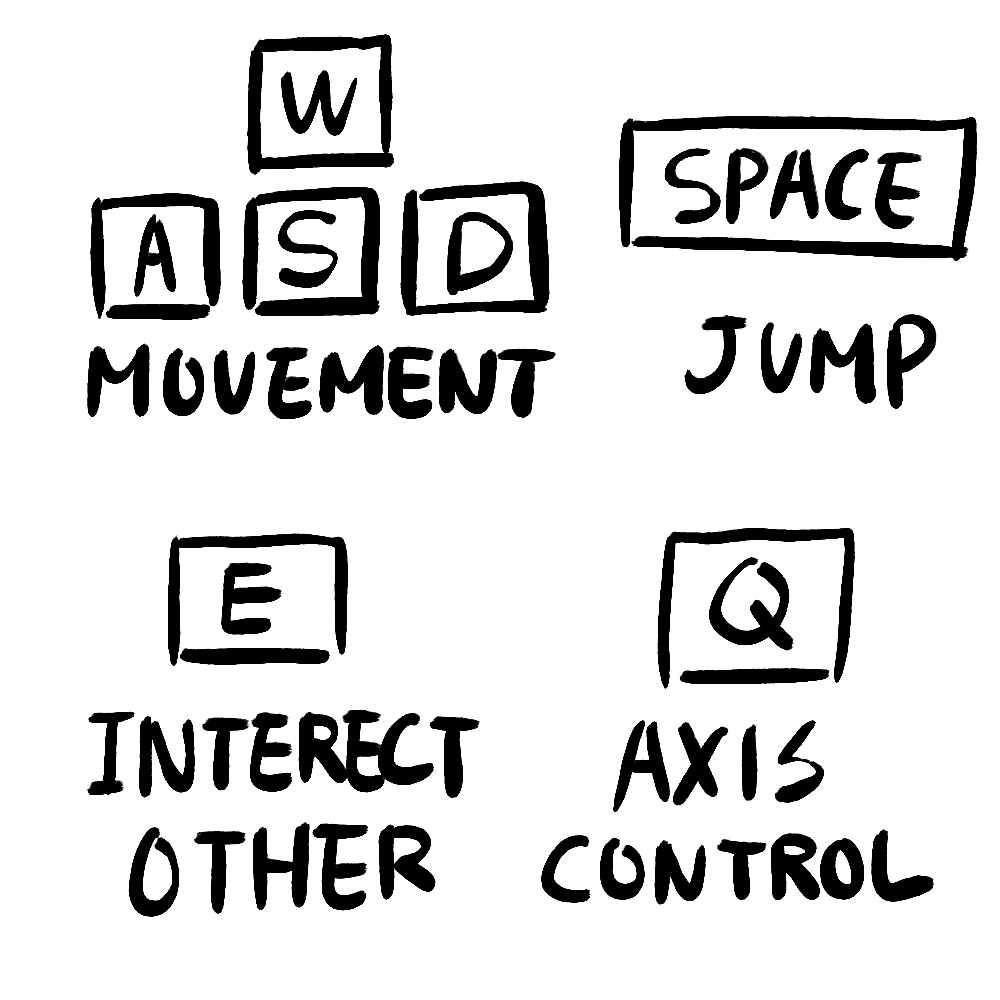 W
A S D
MOVEMENT
SPACE
JUMP
E
INTERECT
OTHER
Q
AXIS
CONTROL